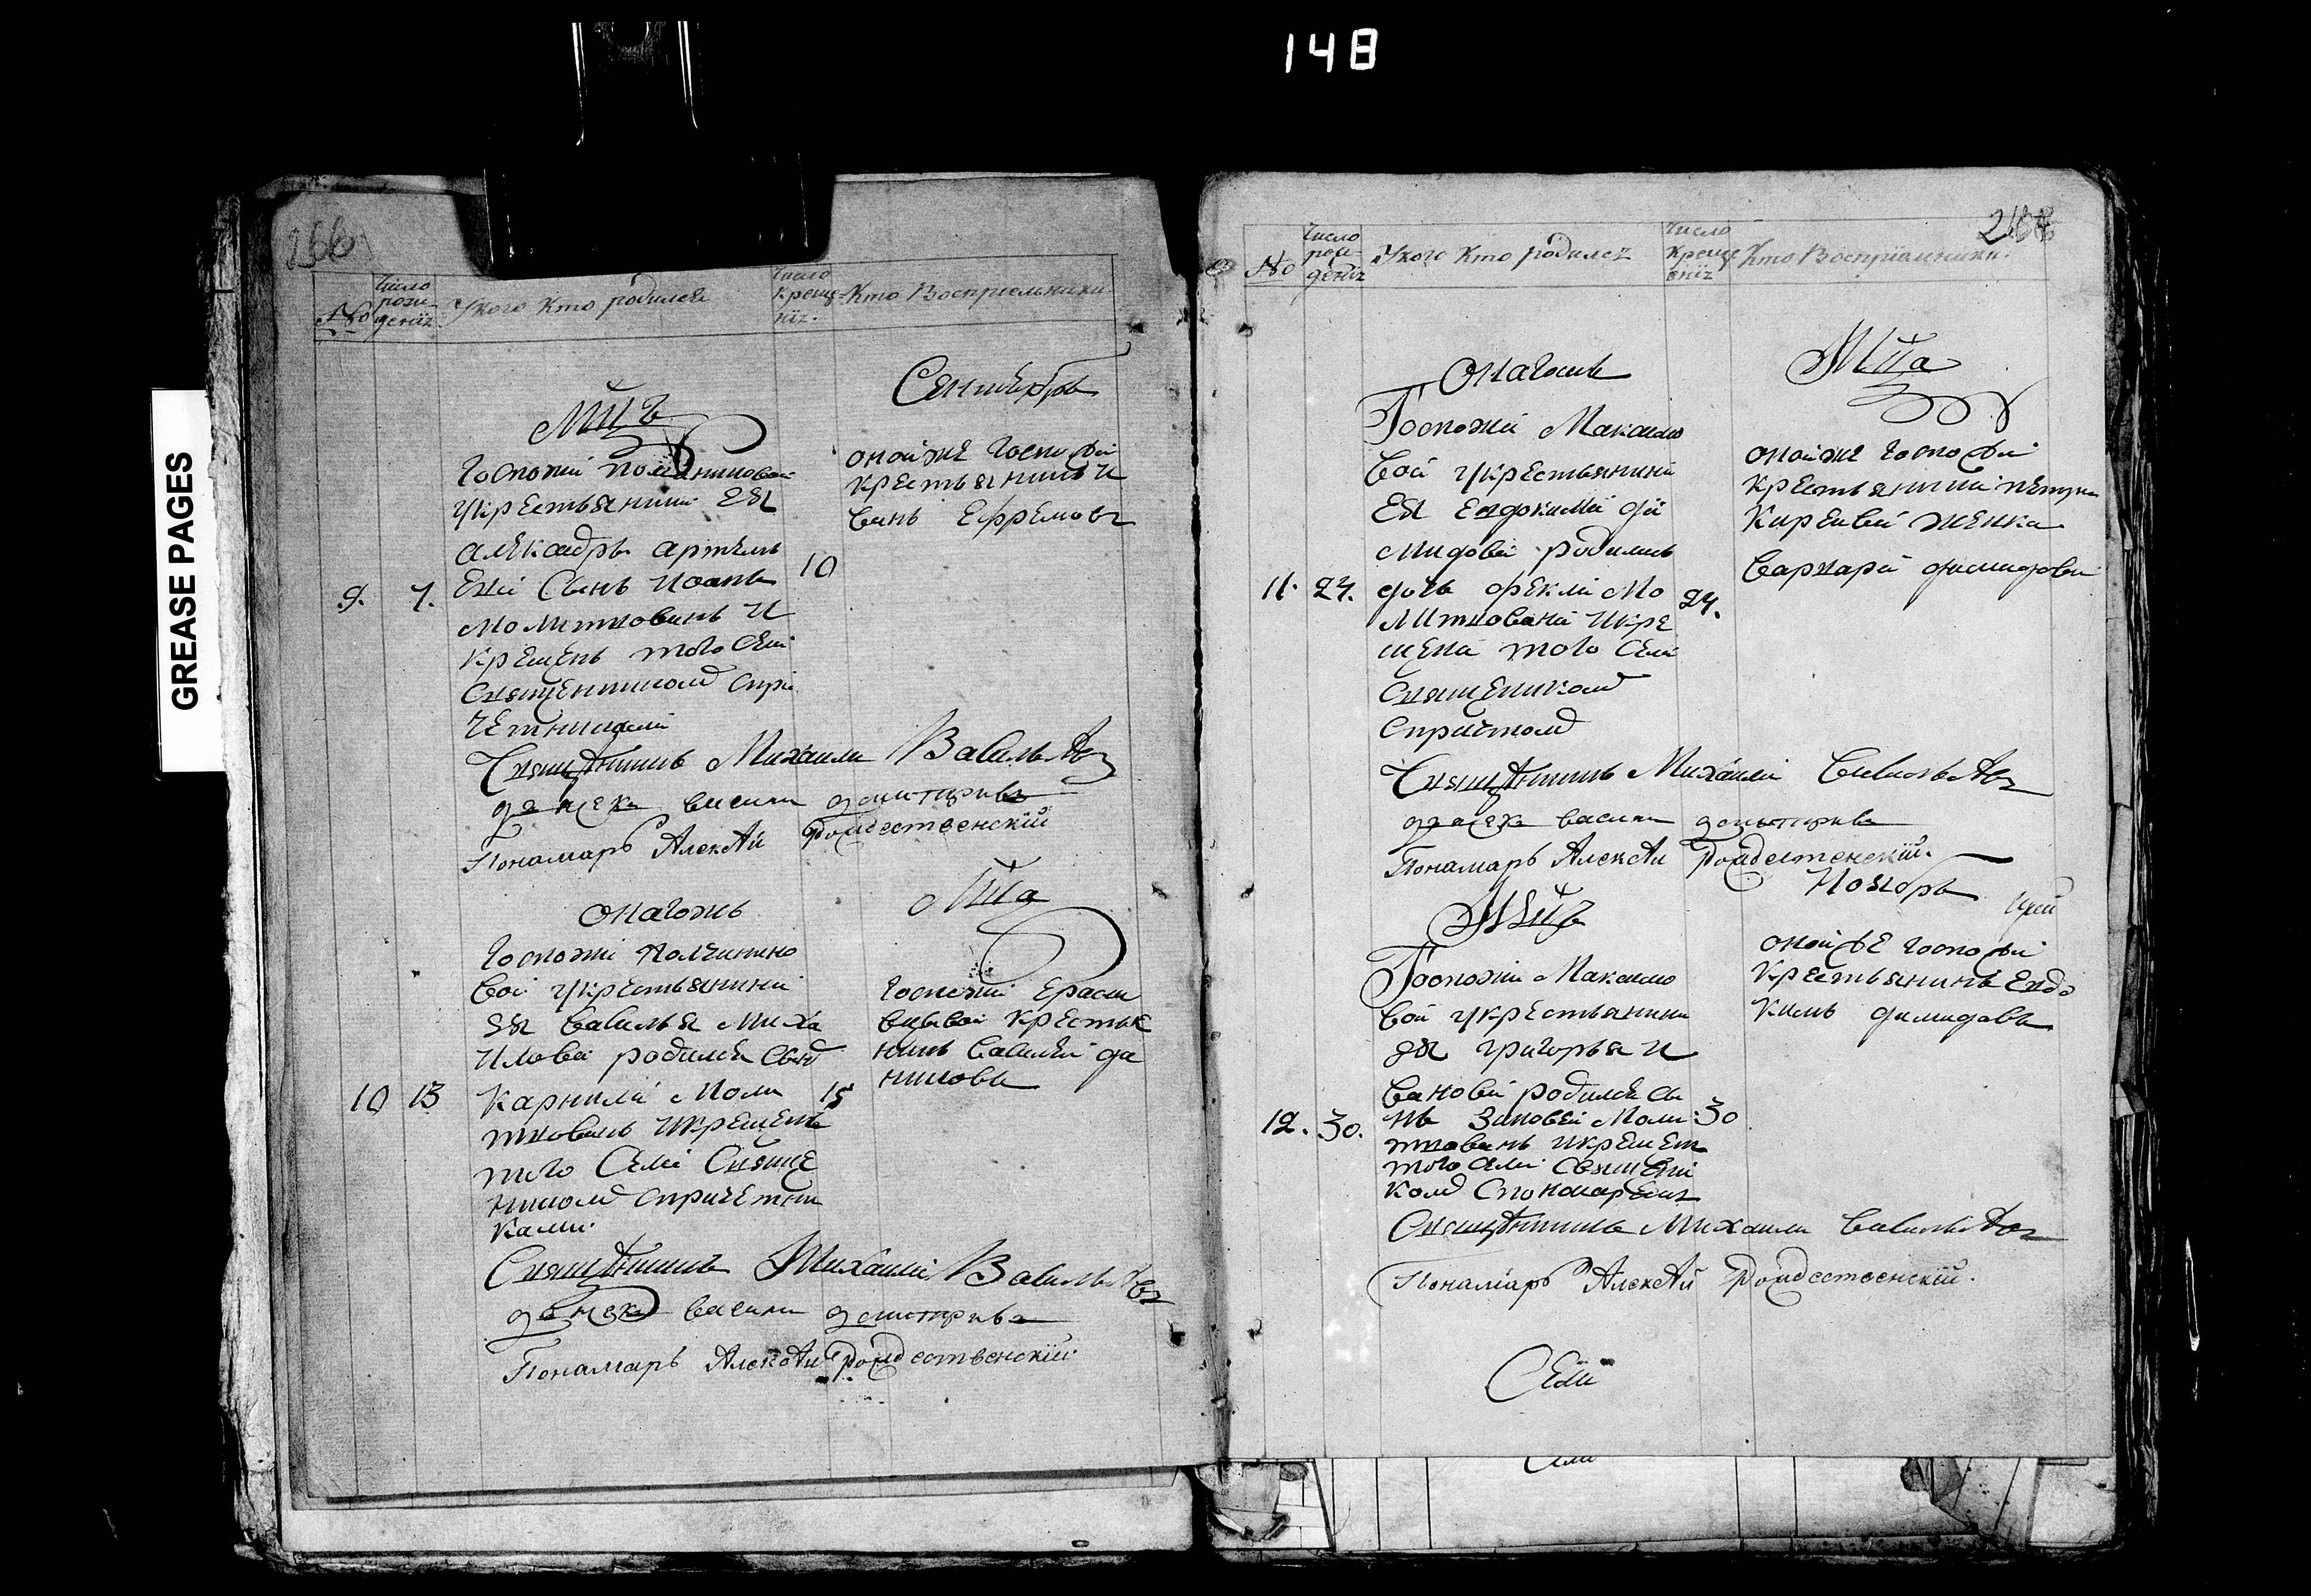 148
GREASE PAGES
266
№
Число рожденiя
У кого кто родился
Число крещенiя
Кто восприемники
Мцъ
Сентябрь
Госпожи
укрестьянина Ея
александра артемь
Ева Сынъ Иоанъ
9. 7.
10
Молитвованъ И
крещенъ того Села
Священникомъ спри
четниками
оной же Госпожи
крестьянинъ И
ванъ Ефремовъ
Священникъ Михаилъ Васильевъ
дьячекъ василей дмитриевъ
Пономарь Алексѣй Рождественскiй
Онагожъ
Мца
Госпожи
вой укрестьянина
Ея василья Миха
илова родился Сынъ
10 13
Карнила Моли
15
твованъ Икрещенъ
того Села Свяще
нникомъ спричетни
ками
Госпожи
крестья
нинъ василей да
ниловъ
Священникъ Михаилъ Васильевъ
дьячекъ василей дмитриевъ
Пономарь Алексѣй Рождественскiй
№
Число рожденiя
У кого кто родился
Число крещенiя
Кто Восприемники
Онагожъ
Мца
Госпожи Максимо
вой укрестьянина
Ея Евдокима ди
мидова родилась
11. 24.
дочь фекла Мо
24.
литвована Икре
щена того Села
Священикомъ
спричтомъ
оной же Госпожи
крестьянина петра
женка
варвара
Священникъ Михаилъ васильевъ
дьячекъ василей дмитриевъ
Пономарь Алексѣй Рождественскiй
Мцъ
Ноябрь
Госпожи Максимо
вой укрестьянина
Ея григорья И
ванова родился сы
12. 30.
нъ Зиновей Моли
30
твованъ икрещенъ
того села священи
комъ Спономаремъ
оной же Госпожи
крестьянинъ Евдо
кимъ димидовъ
Священникъ Михаилъ васильевъ
Пономарь Алексѣй Рождественскiй
Села